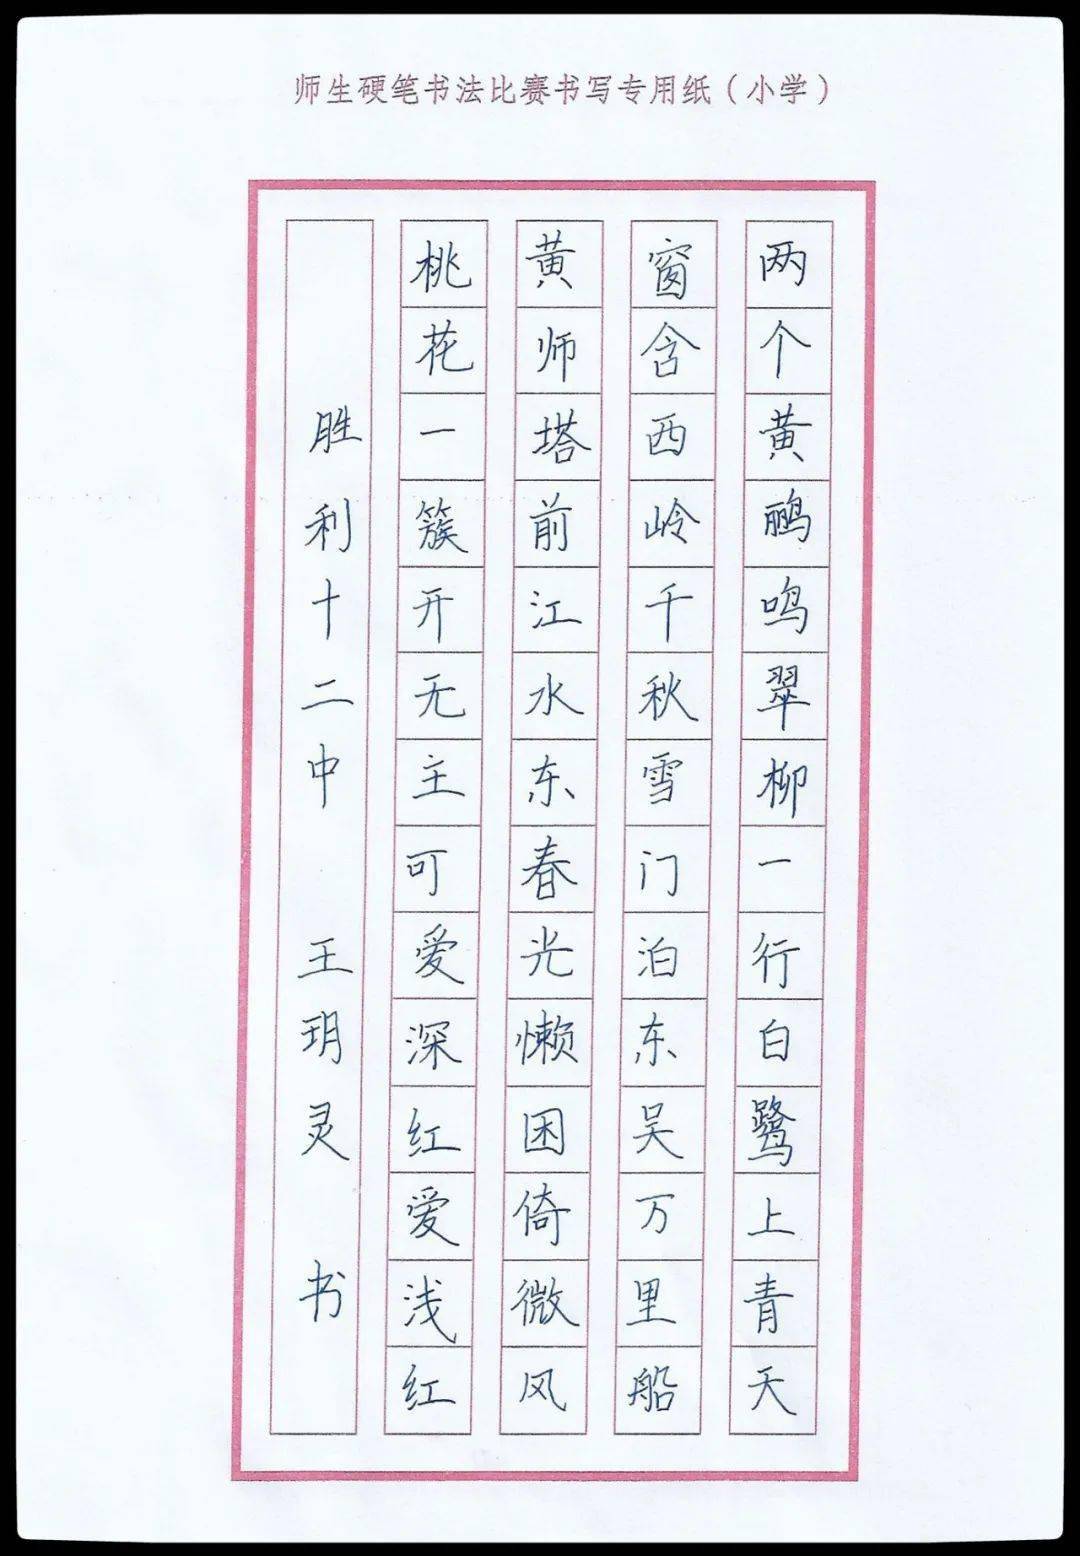 师生硬笔书法比赛书写专用纸（小学）
两个黄鹂鸣翠柳一行白鹭上青天
窗含西岭千秋雪门泊东吴万里船
黄师塔前江水东春光懒困倚微风
桃花一簇开无主可爱深红爱浅红
胜利十二中 王玥灵 书